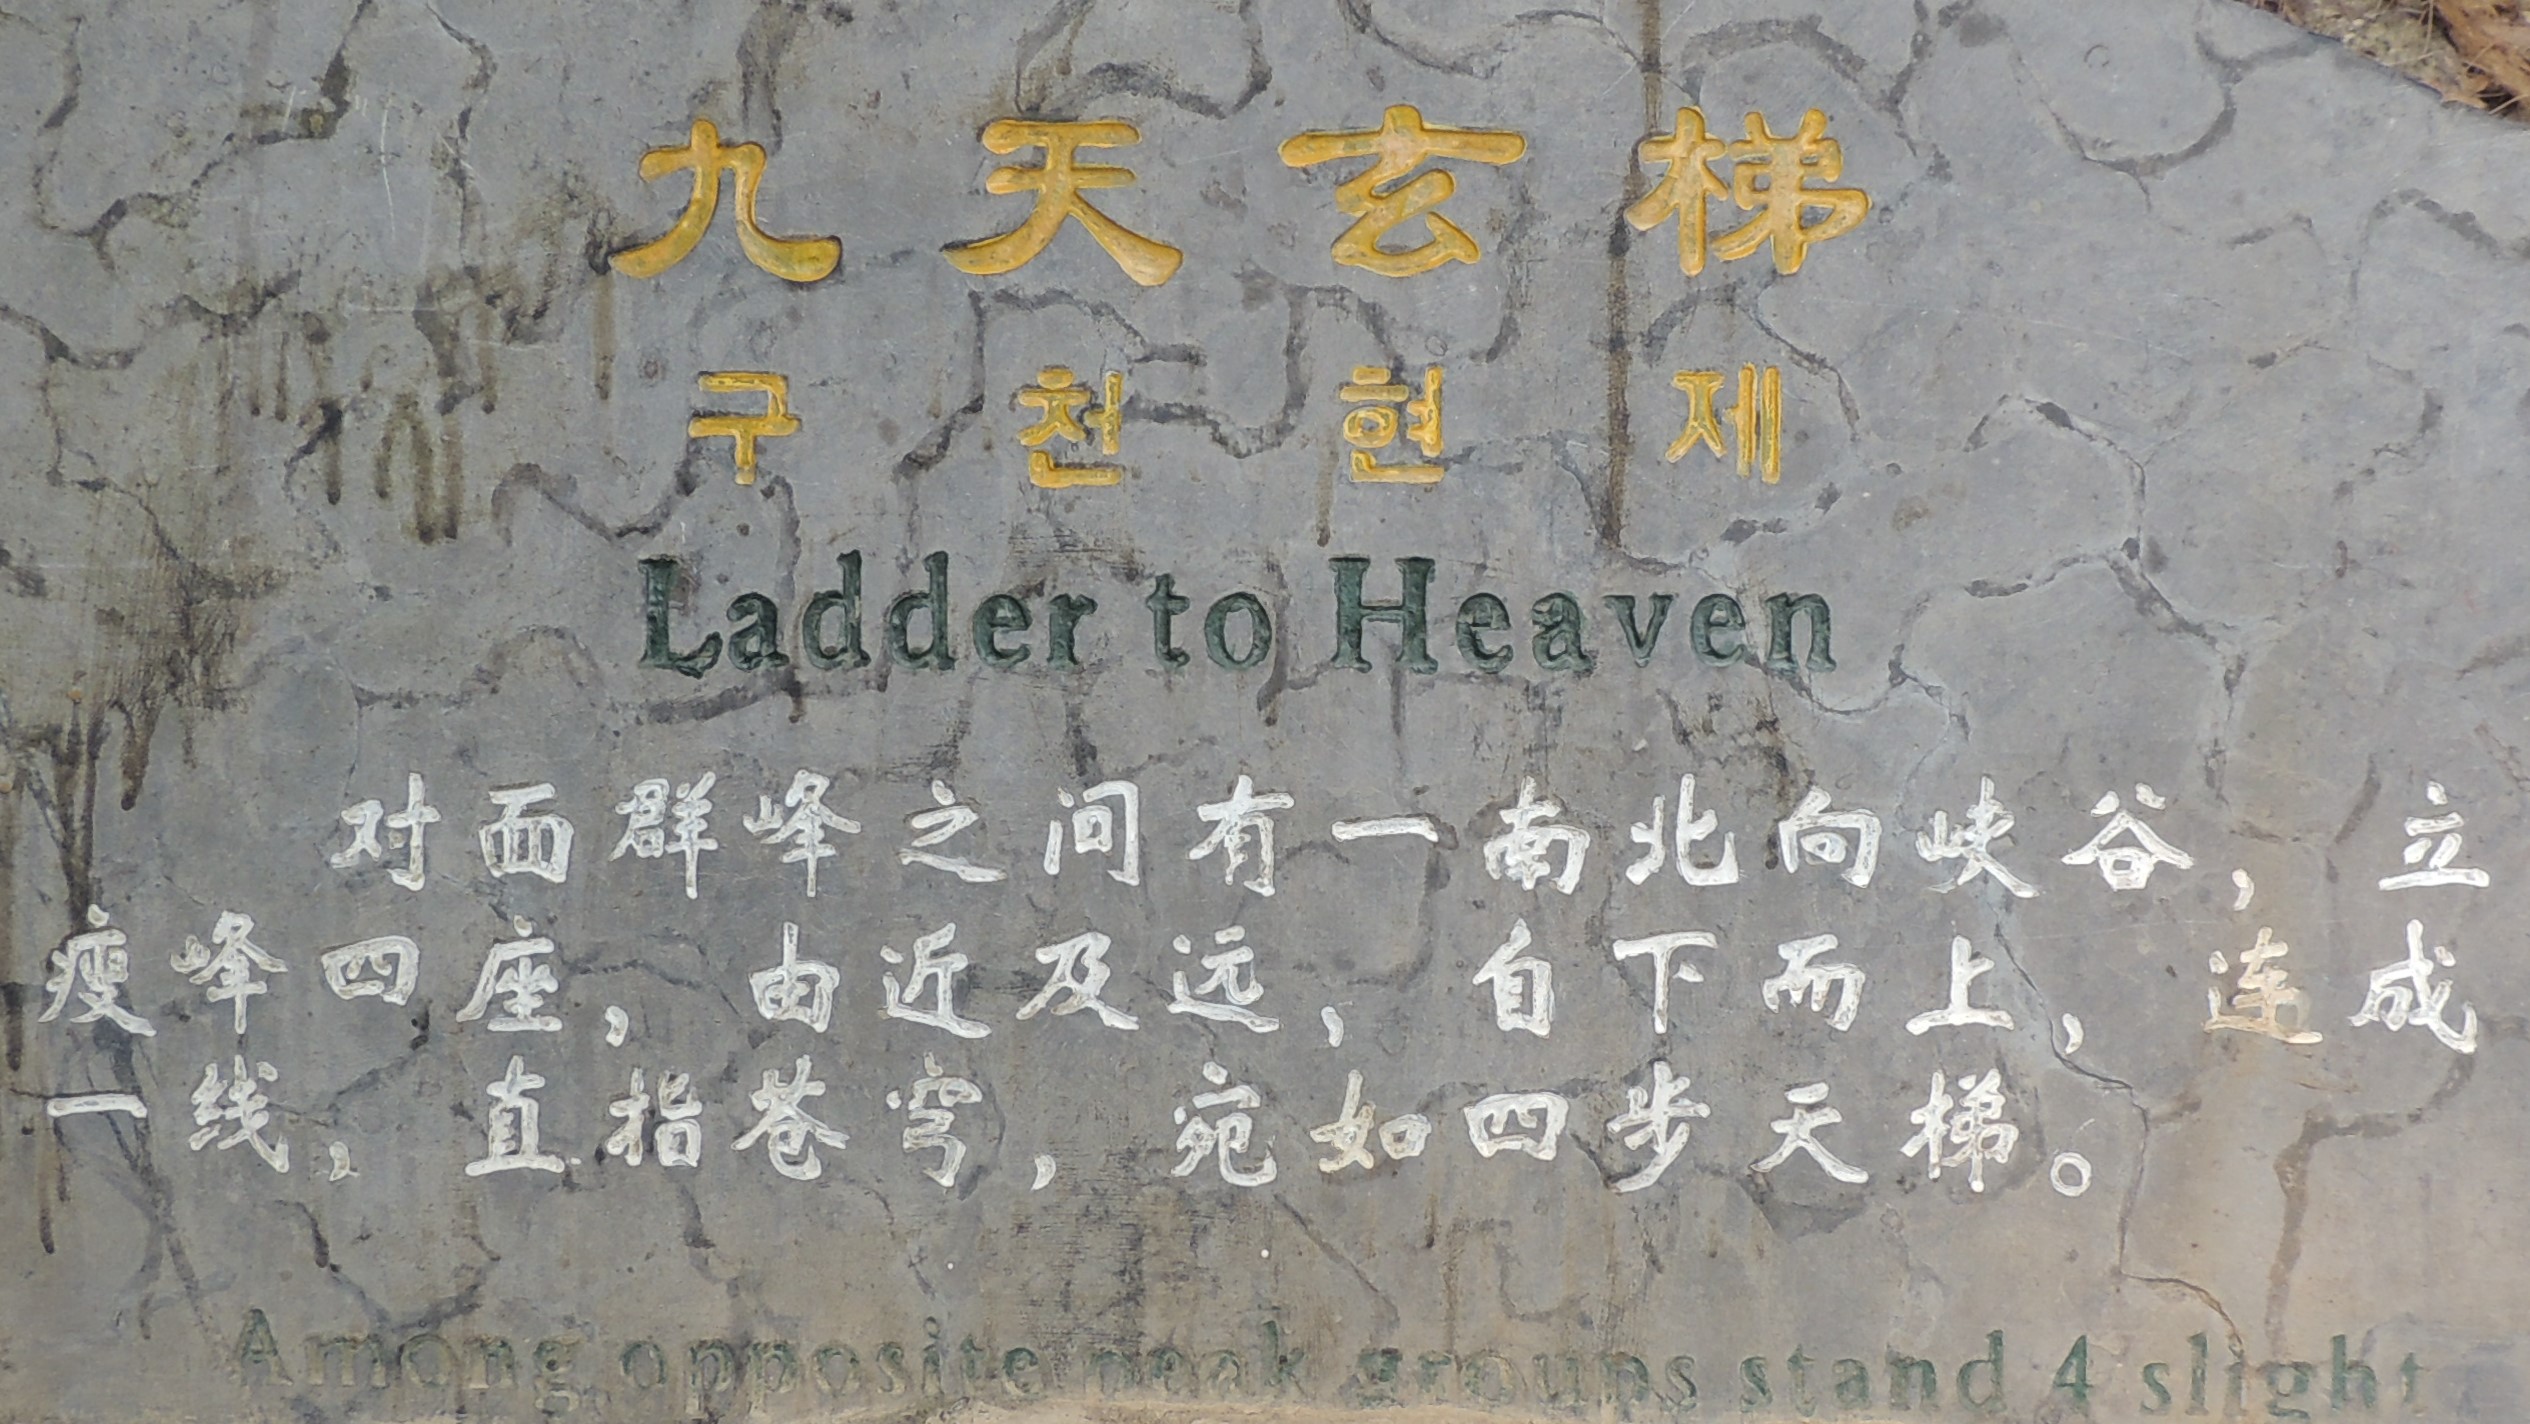 九天玄梯
구천현제
Ladder to Heaven
对面群峰之间有一南北向峡谷，立
瘦峰四座，由近及远，自下而上，连成
一线，直指苍穹，宛如四步天梯。
Among opposite peak groups stand 4 slight